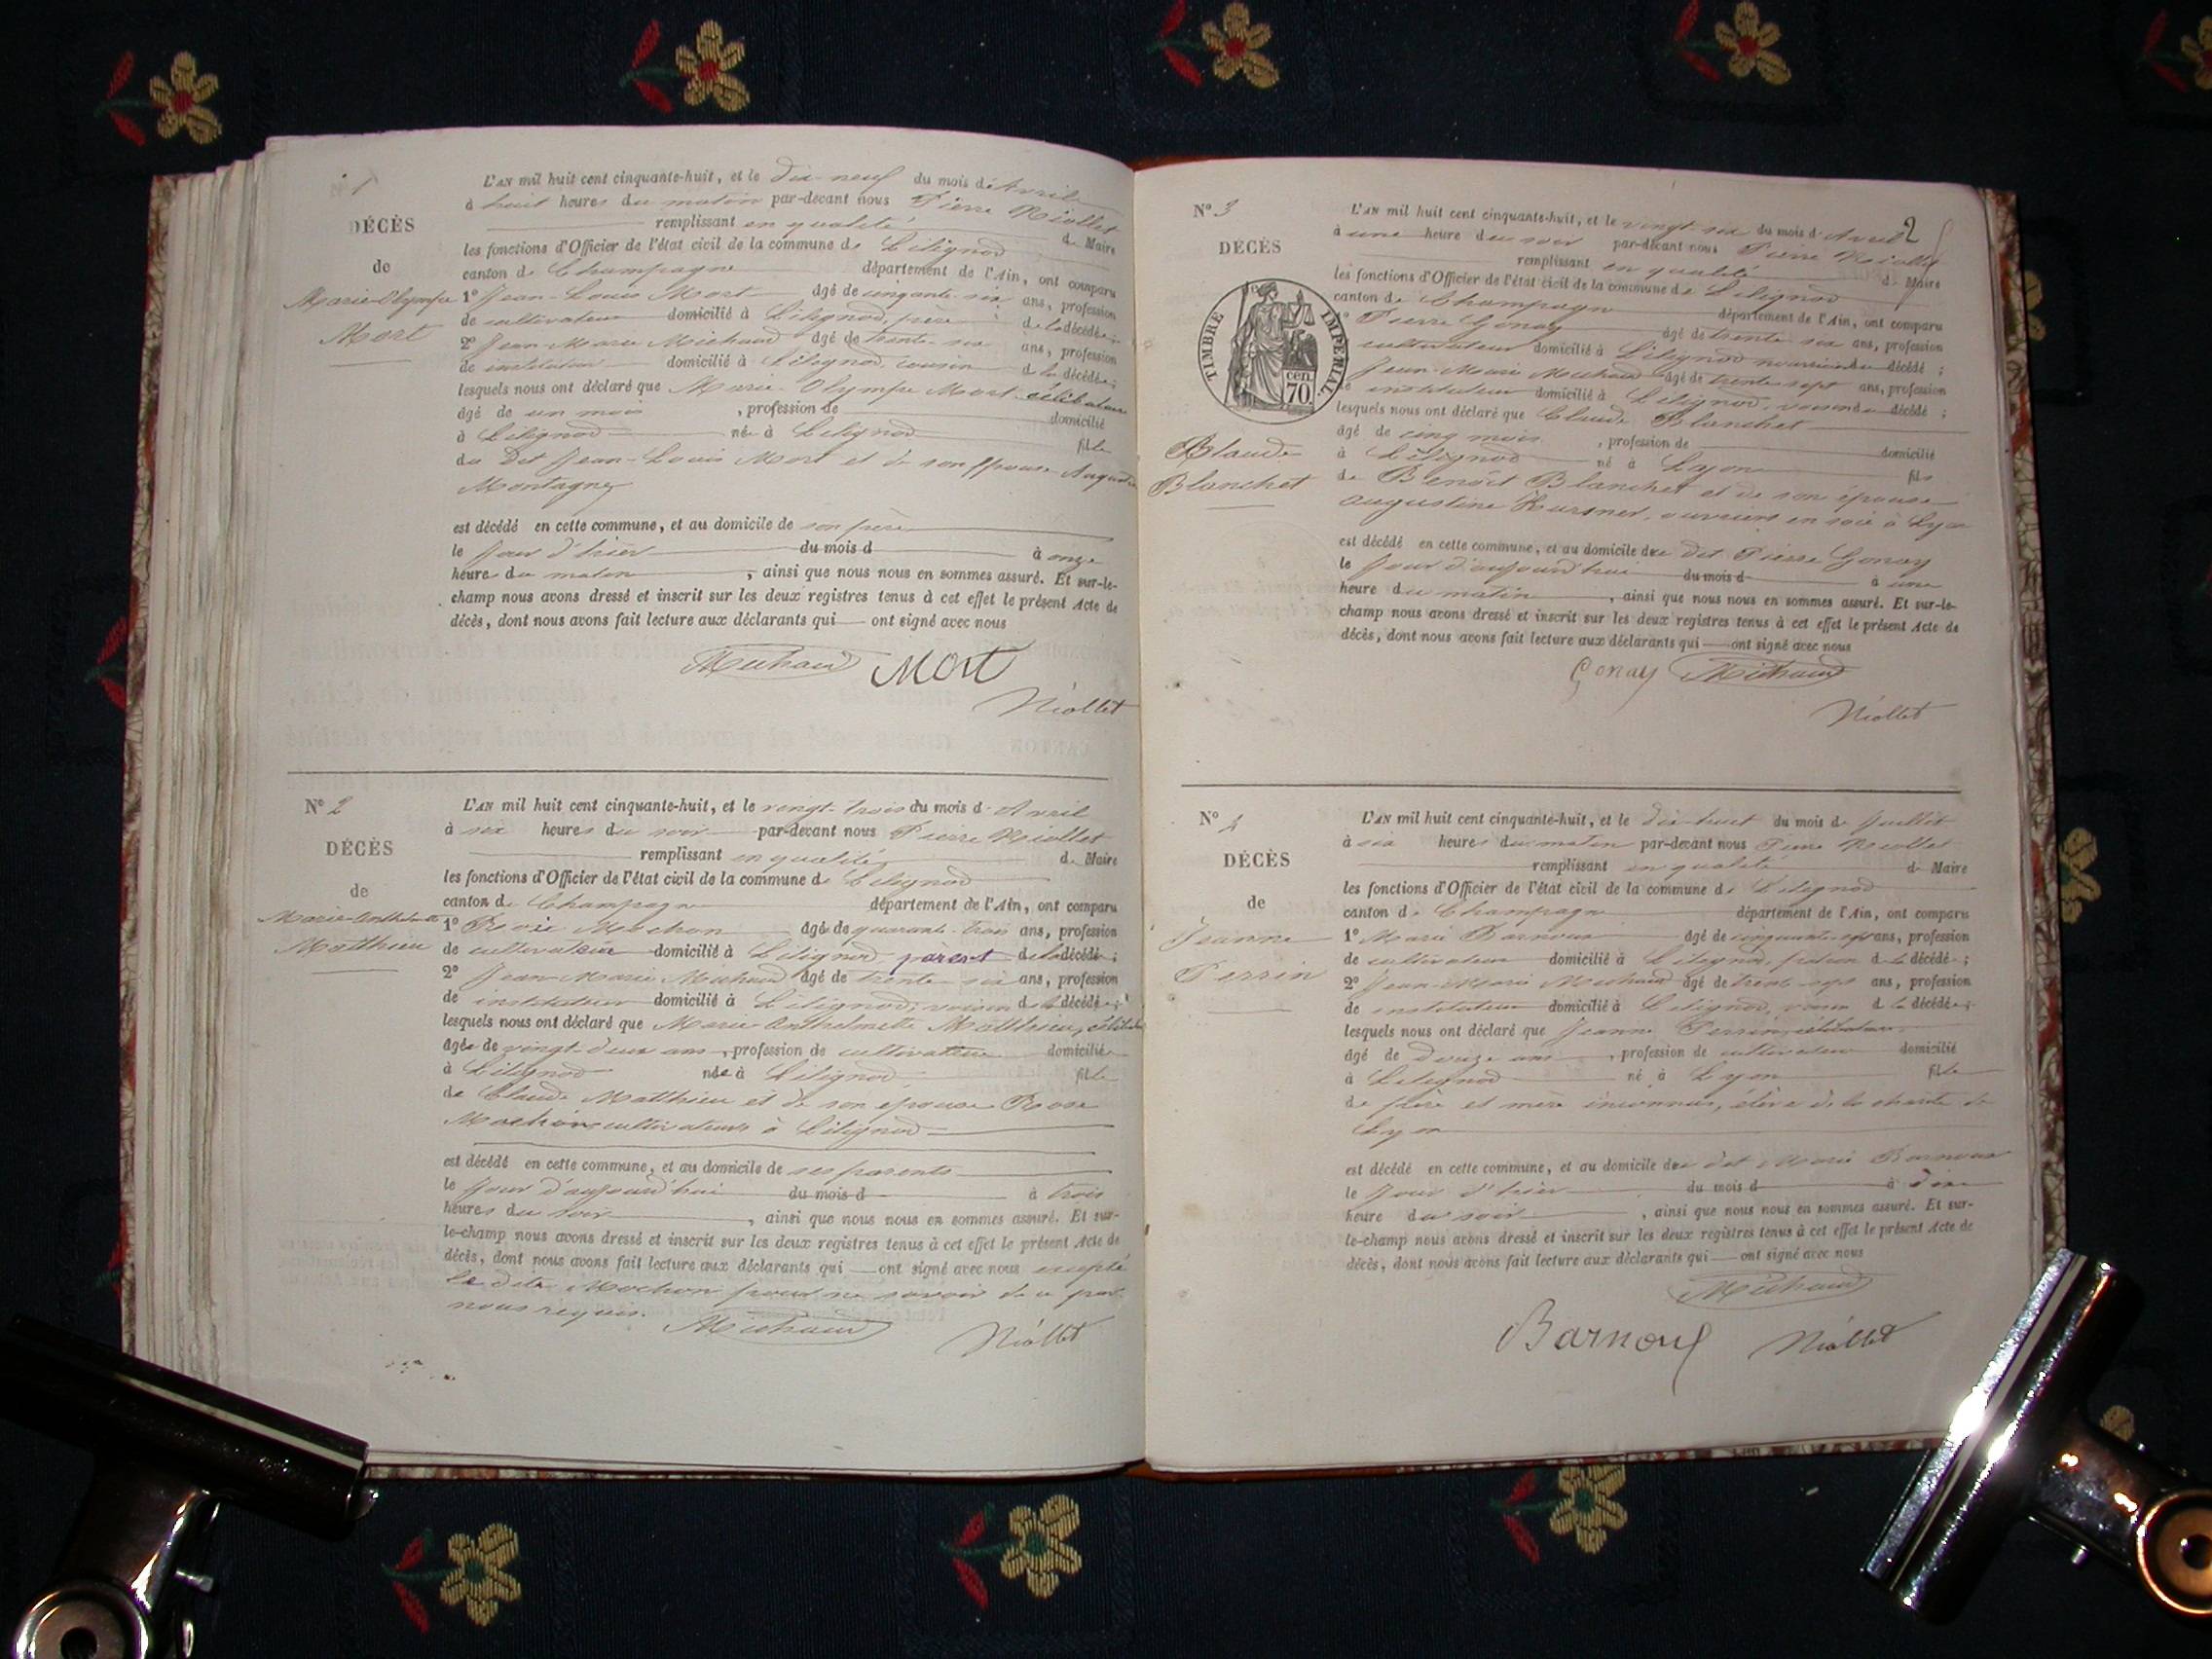 1
L'AN mil huit cent cinquante-huit, et le dix-neuf du mois d'Avril
à huit heures du matin par-devant nous Pierre Niollet
remplissant en qualité de Maire
DÉCÈS
les fonctions d'Officier de l'état civil de la commune de Lilignod
de
canton de Champagne département de l'Ain, ont comparu
Marie-Olympe
Mort
1º Jean-Louis Mort âgé de cinquante-six ans, profession
de cultivateur domicilié à Lilignod, père de la décédée;
2º Jean-Marie Michaud âgé de trente-six ans, profession
de instituteur domicilié à Lilignod, cousin de la décédée;
lesquels nous ont déclaré que Marie-Olympe Mort célibataire
âgé de un mois, profession de domicilié
à Lilignod née à Lilignod fille
du dit Jean-Louis Mort et de son épouse
Montagne
est décédé en cette commune, et au domicile de son père
le jour d'hier du mois d à onze
heures du matin, ainsi que nous nous en sommes assuré. Et sur-le-
champ nous avons dressé et inscrit sur les deux registres tenus à cet effet le présent Acte de
décès, dont nous avons fait lecture aux déclarants qui ont signé avec nous
Michaud Mort
Niollet
Nº 2
DÉCÈS
de
Marie-Anthelmette
Matthieu
L'AN mil huit cent cinquante-huit, et le vingt-trois du mois d'Avril
à six heures du soir par-devant nous Pierre Niollet
remplissant en qualité de Maire
les fonctions d'Officier de l'état civil de la commune de Lilignod
canton de Champagne département de l'Ain, ont comparu
1º Mochon âgé de quarante-trois ans, profession
de cultivateur domicilié à Lilignod, parent de la décédée;
2º Jean-Marie Michaud âgé de trente-six ans, profession
de instituteur domicilié à Lilignod, voisin de la décédée;
lesquels nous ont déclaré que Marie-Anthelmette Matthieu,
âgée de vingt-deux ans, profession de cultivateur domicilié
à Lilignod née à Lilignod fille
de Claude Matthieu et de son épouse Rose
Mochon cultivateurs à Lilignod
est décédé en cette commune, et au domicile de ses parents
le jour d'aujourd'hui du mois d à trois
heures du soir, ainsi que nous nous en sommes assuré. Et sur-
le-champ nous avons dressé et inscrit sur les deux registres tenus à cet effet le présent Acte de
décès, dont nous avons fait lecture aux déclarants qui ont signé avec nous excepté
Mochon pour ne savoir de ce par
nous requis.
Michaud Niollet
2
Nº 3
DÉCÈS
TIMBRE IMPÉRIAL.
cen.
70.
Claude
Blanchet
L'AN mil huit cent cinquante-huit, et le vingt-six du mois d'Avril
à une heure du soir par-devant nous Pierre Niollet
remplissant en qualité de Maire
les fonctions d'Officier de l'état civil de la commune de Lilignod
canton de Champagne département de l'Ain, ont comparu
1º Pierre Gonay âgé de trente-six ans, profession
cultivateur domicilié à Lilignod nourricier du décédé;
Jean-Marie Michaud âgé de trente-sept ans, profession
de instituteur domicilié à Lilignod, voisin du décédé;
lesquels nous ont déclaré que Claude Blanchet
âgé de cinq mois, profession de domicilié
à Lilignod né à Lyon fils
de Benoît Blanchet et de son épouse
Augustine ouvriers en soie à Lyon
est décédé en cette commune, et au domicile du dit Pierre Gonay
le jour d'aujourd'hui du mois d à une
heure du matin, ainsi que nous nous en sommes assuré. Et sur-le-
champ nous avons dressé et inscrit sur les deux registres tenus à cet effet le présent Acte de
décès, dont nous avons fait lecture aux déclarants qui ont signé avec nous
Gonay Michaud
Niollet
Nº 4
DÉCÈS
de
Jeanne
Perrin
L'AN mil huit cent cinquante-huit, et le dix-huit du mois de Juillet
à six heures du matin par-devant nous Pierre Niollet
remplissant en qualité de Maire
les fonctions d'Officier de l'état civil de la commune de Lilignod
canton de Champagne département de l'Ain, ont comparu
1º Marie Barnoux âgé de cinquante-sept ans, profession
de cultivateur domicilié à Lilignod, patron de la décédée;
2º Jean-Marie Michaud âgé de trente-sept ans, profession
de instituteur domicilié à Lilignod, voisin de la décédée;
lesquels nous ont déclaré que Jeanne Perrin, célibataire
âgé de douze ans, profession de cultivateur domicilié
à Lilignod né à Lyon fille
de père et mère inconnus, élève de la charité de
Lyon
est décédé en cette commune, et au domicile du dit Marie Barnoux
le jour d'hier du mois d à dix
heure du soir, ainsi que nous nous en sommes assuré. Et sur-
le-champ nous avons dressé et inscrit sur les deux registres tenus à cet effet le présent Acte de
décès, dont nous avons fait lecture aux déclarants qui ont signé avec nous
Michaud
Barnoux Niollet